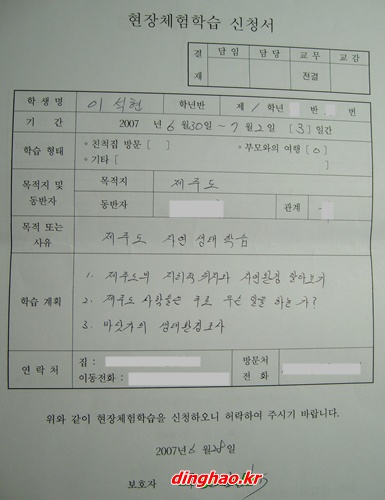 현장체험학습 신청서
결재 담임 담당 교무 교감
전결
학 생 명 이 석현 학년반 제 1 학년 반 번
기 간 2007 년 6 월 30 일 ~ 7 월 2 일 [ 3 ] 일간
학습 형태 • 친척집 방문 [ ] • 부모와의 여행 [ O ]
• 기타 [ ]
목적지 및 동반자 목적지 제주도
동반자 관계
목적 또는 사유 제주도 자연 생태 학습
학습 계획 1. 제주도의 지리적 위치와 자연환경 알아보기
2. 제주도 사람들은 주로 무슨 일을 하는가?
3. 바닷가의 생태환경조사
연 락 처 집 : 방문처 전 화
이동전화 :
위와 같이 현장체험학습을 신청하오니 허락하여 주시기 바랍니다.
2007년 6 월 28 일
dinghao.kr
보호자